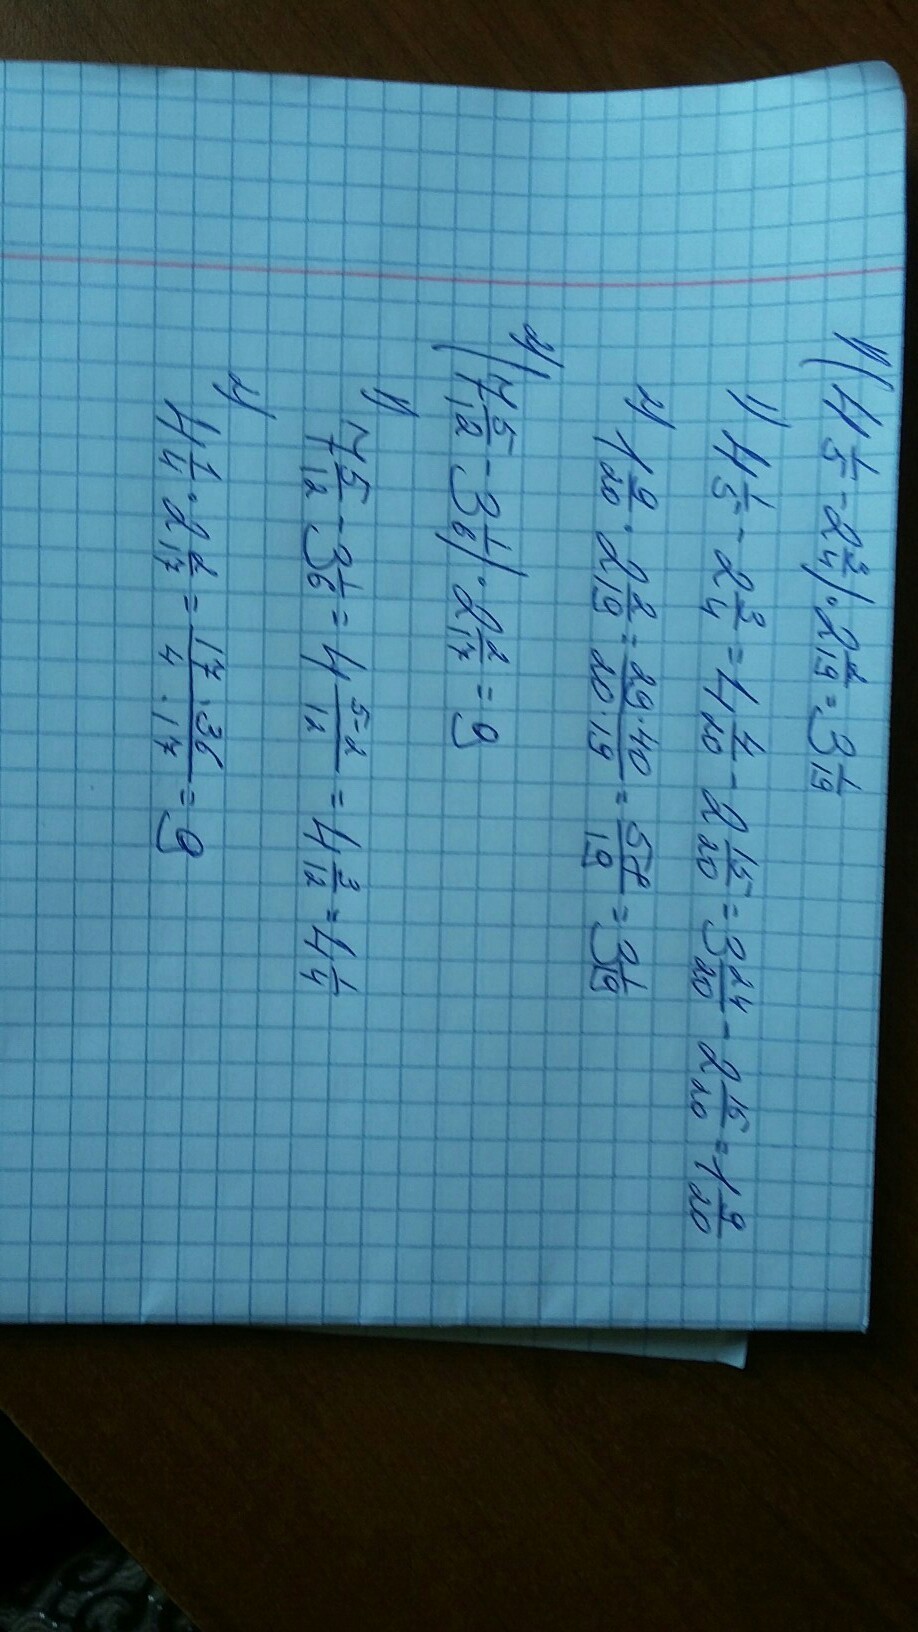 1) (4 1/5 - 2 3/4) · 2 2/19 = 3 1/19
1) 4 1/5 - 2 3/4 = 4 4/20 - 2 15/20 = 3 24/20 - 2 15/20 = 1 9/20
2) 1 9/20 · 2 2/19 = 29·40/20·19 = 58/19 = 3 1/19
2) (7 5/12 - 3 1/6) · 2 2/17 = 9
1) 7 5/12 - 3 1/6 = 4 5-2/12 = 4 3/12 = 4 1/4
2) 4 1/4 · 2 2/17 = 17·36/4·17 = 9